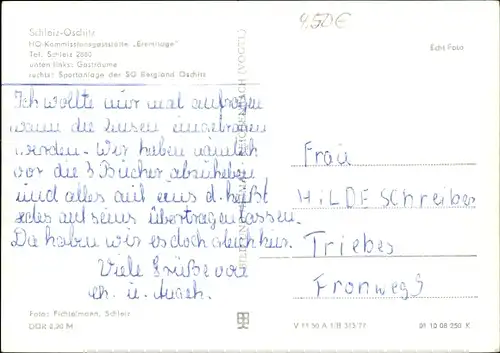 Schleiz-Oschitz
HO-Kommissionsgaststätte „Eremitage"
Tel. Schleiz 2660
unten links: Gasträume
rechts: Sportanlage der SG Bergland Oschitz
4,50€
Echt Foto
Ich wollte nur mal anfragen
wann die Zinsen eingetragen
werden. Wir haben nämlich
vor die 3 Bücher abzuheben
und alles auf eins d. heißt
jedes auf seins übertragen lassen.
Da haben wir es doch gleich hier.
Viele Grüße von
Frau
HILDE Schreiber
Triebes
Fronweg 9
Foto: Fichtelmann, Schleiz
DDR 0,30 M
V 11 50 A 1/B 313/77
01 10 08 250 K